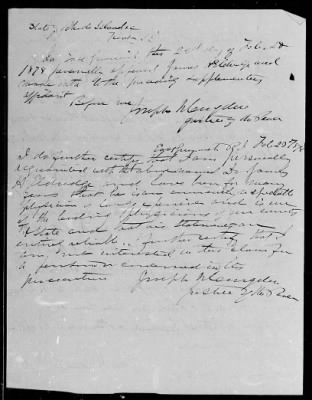 State of Rhode Island &c
Kent Sc
In East Greenwich this 20th day of Feb. AD
1878 personally appeared James H Eldredge and
made oath to the preceding supplementary
affidavit
Before me
Joseph W Congdon
Justice of the Peace
East Greenwich R.I. Feb 20th 1878
I do further certify that I am personally
acquainted with the above named Dr James
H Eldredge and have been for many
years that he is an
physician of large experience and is one
of the leading physicians of our county
& State and that his statements are
entirely reliable I further certify that I
am not interested in this claim for
a pension or concerned in its
prosecution
Joseph W Congdon
Justice of the Peace